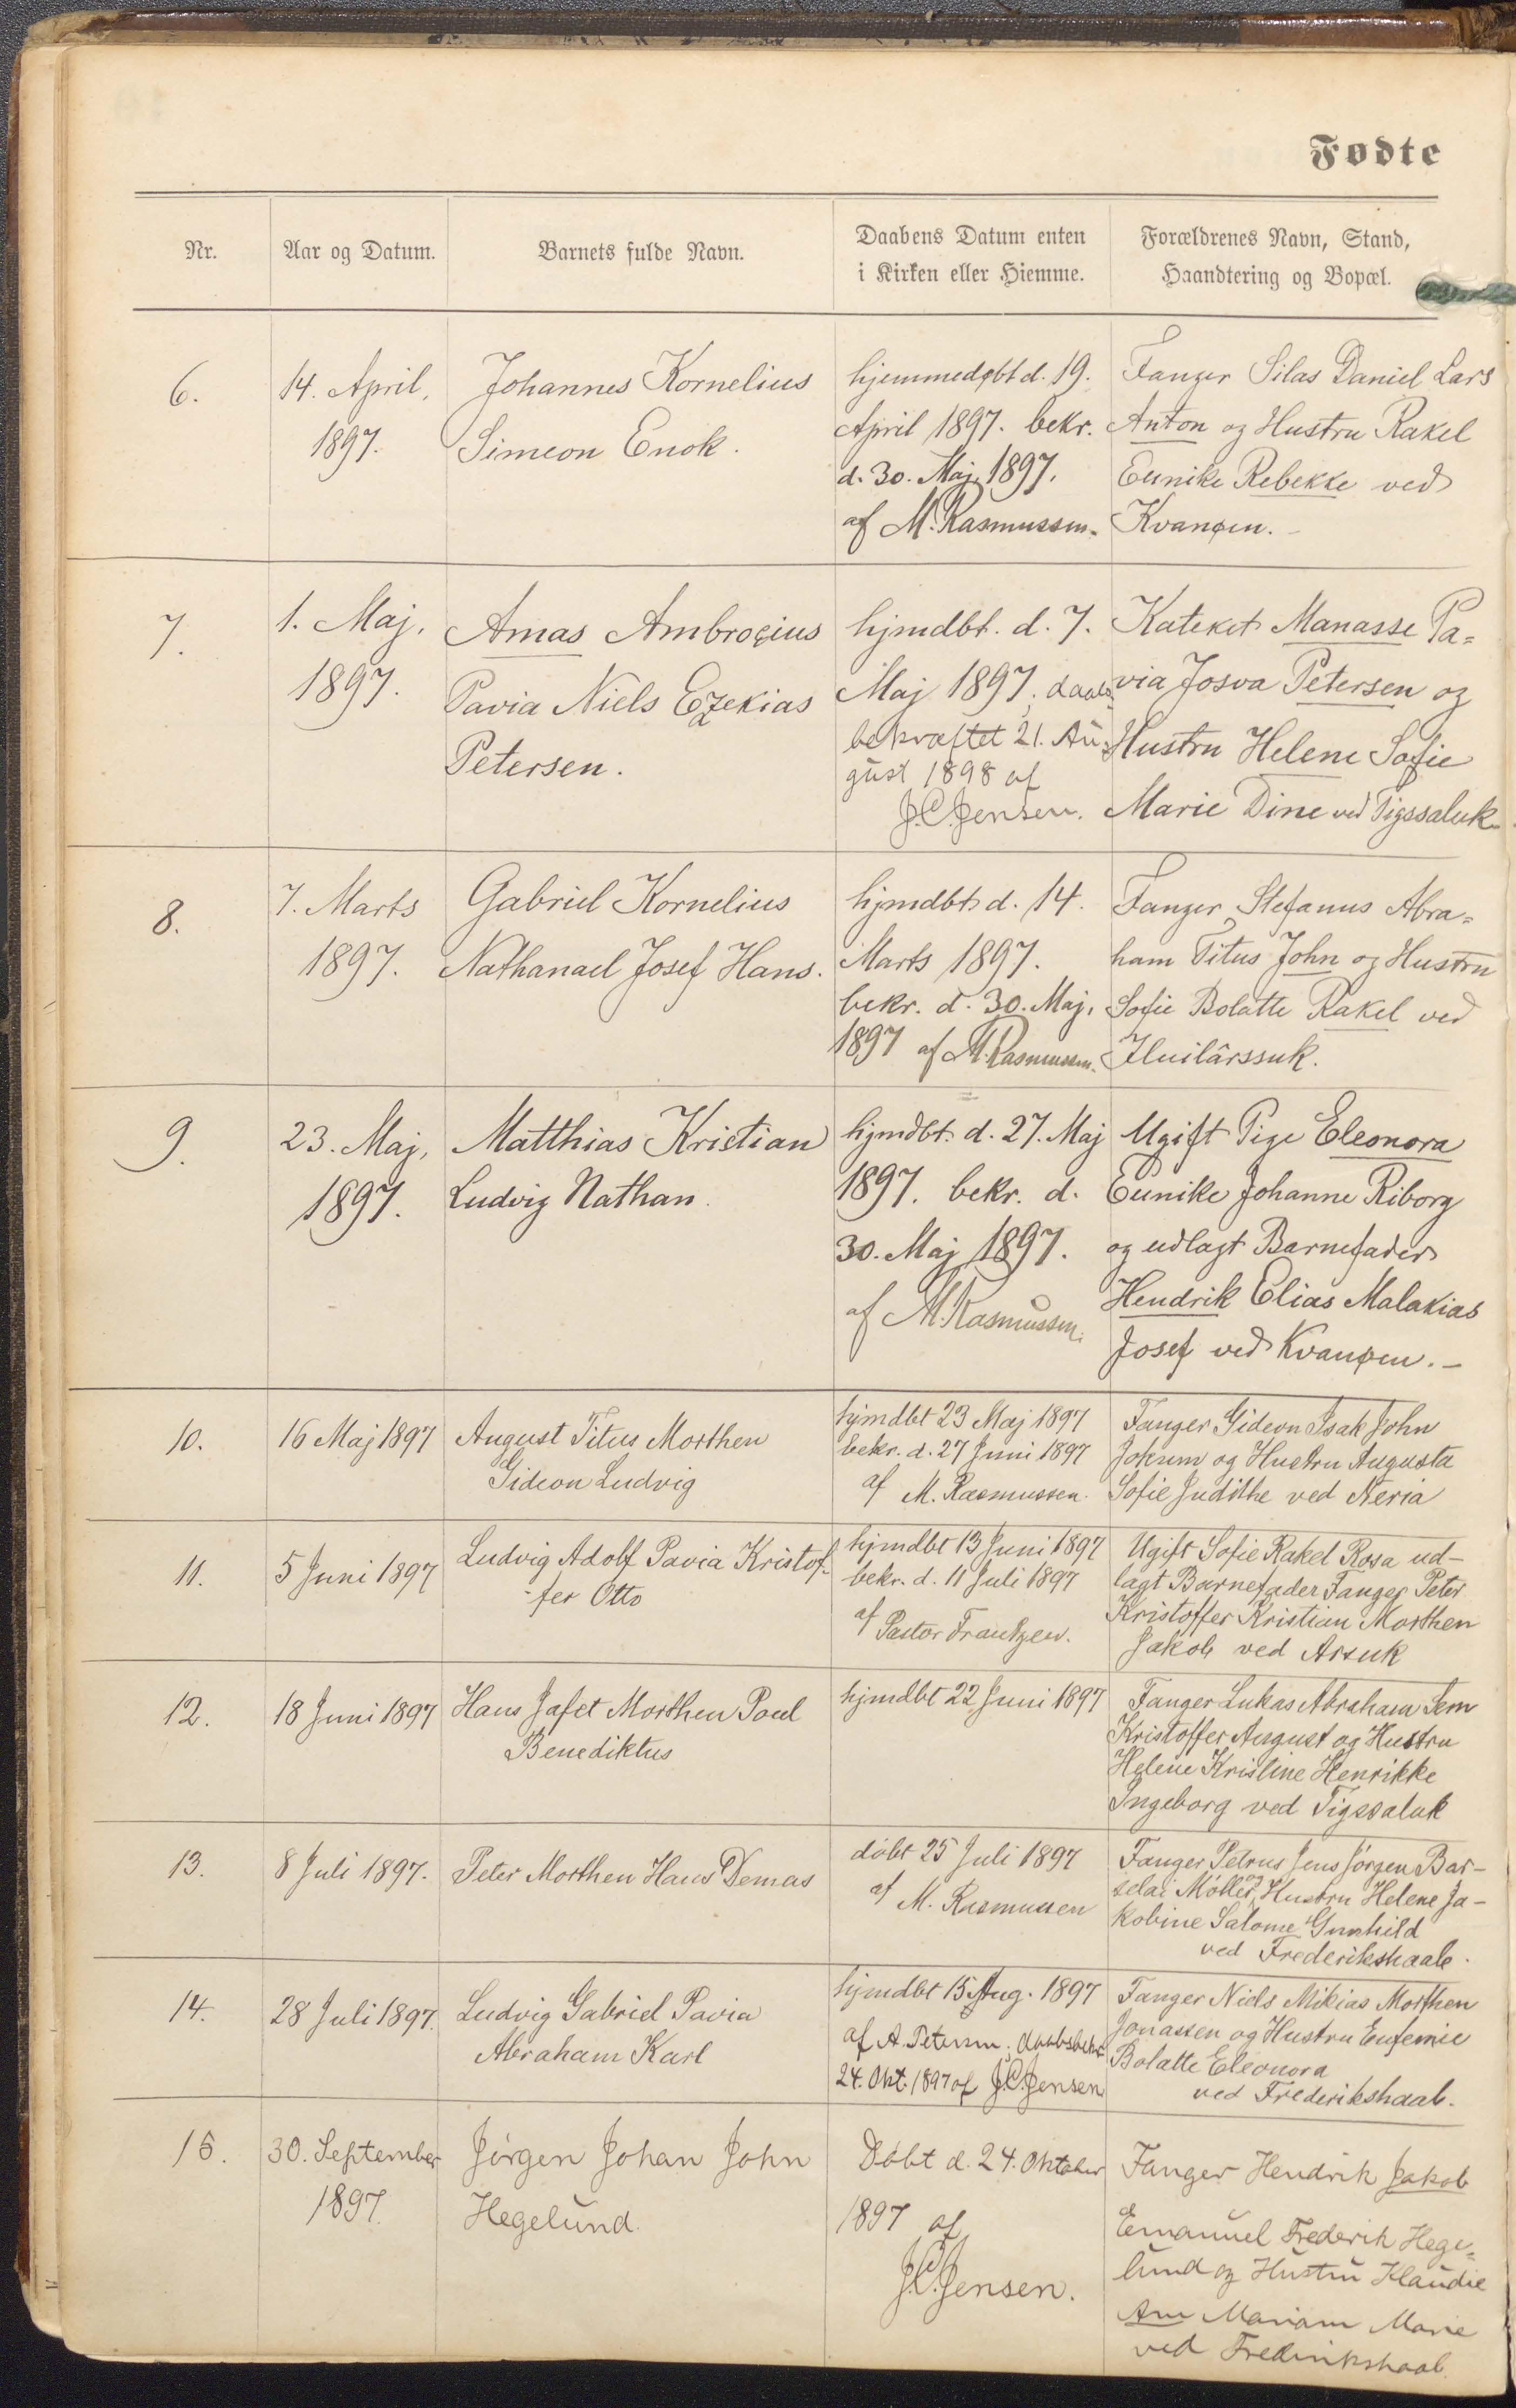 Fødte
Nr.
Aar og Datum.
Barnets fulde Navn.
Daabens Datum enten
i Kirken eller Hiemme.
Forældrenes Navn, Stand,
Haandtering og Bopæl.
6.
14. April,
1897.
Johannes Kornelius
Simeon Enok.
hjemmedøbt d. 19.
April 1897. bekr.
d. 30. Maj, 1897.
af M. Rasmussen.
Fanger Silas Daniel Lars
Anton og Hustru Rakel
Eunike Rebekke ved
Kvanøen.
7.
1. Maj,
1897.
Amas Ambrosius
Pavia Niels Ezekias
Petersen.
hjmdbt. d. 7.
Maj 1897, daab-
bekræftet 21. Au-
gust 1898 af
J.C. Jensen.
Kateket Manasse Pa=
via Josva Petersen og
Hustru Helene Sofie
Marie Dine ved Tigssaluk
8.
7. Marts
1897.
Gabriel Kornelius
Nathanael Josef Hans.
hjmdbt. d. 14.
Marts 1897.
bekr. d. 30. Maj,
1897 af M. Rasmussen.
Fanger Stefanus Abra=
ham Titus John og Hustru
Sofie Bolatte Rakel ved
Iluilârssuk.
9.
23. Maj,
1897.
Matthias Kristian
Ludvig Nathan.
hjmdbt. d. 27. Maj
1897. bekr. d.
30. Maj 1897.
af M. Rasmussen.
Ugift Pige Eleonora
Eunike Johanne Riborg
og udlagt Barnefader
Hendrik Elias Malakias
Josef ved Kvanøen. -
10.
16 Maj 1897
August Titus Morthen
Gideon Ludvig
hjmdbt 23 Maj 1897
bekr. d. 27 Juni 1897
af M. Rasmussen.
Fanger Gideon Isak John
Jokum og Hustru Augusta
Sofie Judithe ved Neria
11.
5 Juni 1897
Ludvig Adolf Pavia Kristof-
-fer Otto
hjmdbt 13 Juni 1897
bekr. d. 11 Juli 1897
af Pastor Frantzen.
Ugift Sofie Rakel Rosa ud-
lagt Barnefader Fanger Peter
Kristoffer Kristian Morthen
Jakob ved Arsuk
12.
18 Juni 1897
Hans Jafet Morthen Poul
Benediktus
hjmdbt 22 Juni 1897
Fanger Lukas Abraham Sem
Kristoffer August og Hustru
Helene Kristine Henrikke
Ingeborg ved Tigssaluk
13.
8 Juli 1897.
Peter Morthen Hans Demas
døbt 25 Juli 1897
af M. Rasmussen
Fanger Petrus Jens Jørgen Bar-
selai Møller og Hustru Helene Ja-
kobine Salome Gunhild
ved Frederikshaab.
14.
28 Juli 1897.
Ludvig Gabriel Pavia
Abraham Karl
hjmdbt 15 Aug. 1897
af A. Petersen, daabsbekr.
24. Okt. 1897 af J.C. Jensen
Fanger Niels Mikias Morthen
Jonassen og Hustru Eufemie
Bolatte Eleonora
ved Frederikshaab.
15.
30. September
1897.
Jørgen Johan John
Hegelund.
Døbt d. 24. Oktober
1897 af
J.C. Jensen.
Fanger Hendrik Jakob
Emanuel Frederik Hege=
lund og Hustru Klaudie
Ane Mariane Marie
ved Frederikshaab.